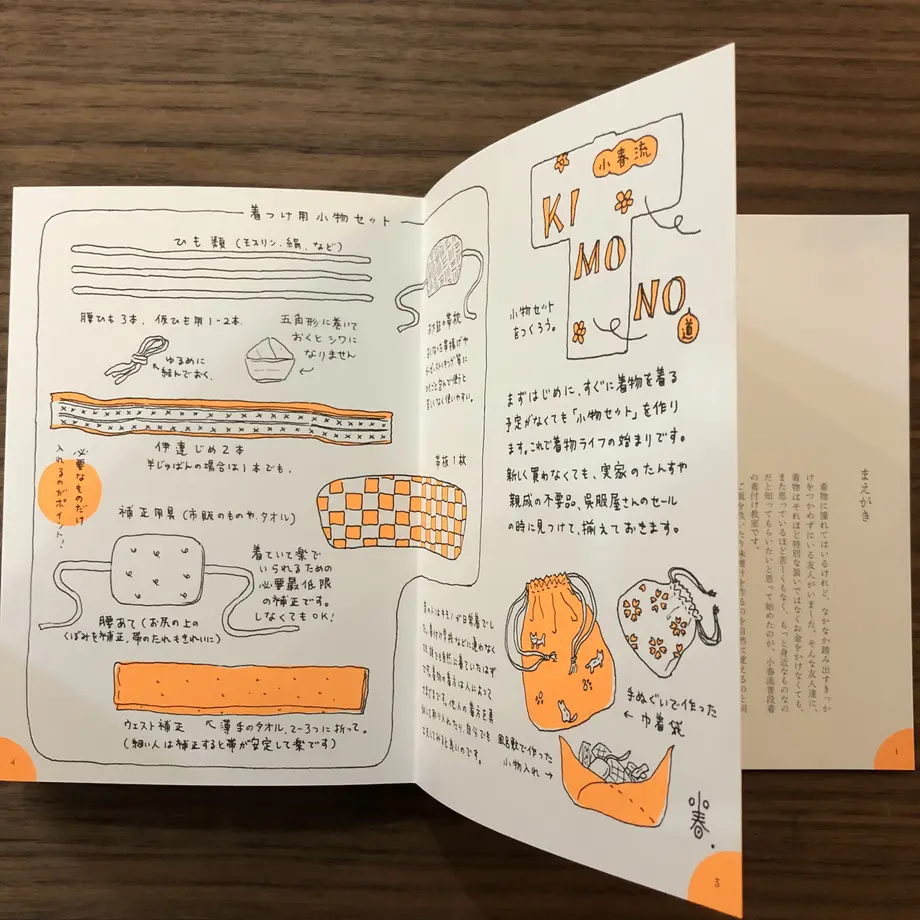 着つけ用小物セット
ひも類(モスリン.絹.など)
腰ひも3本.仮ひも用1-2本.
ゆるめに
結んでおく.
五角形に巻いて
おくとシワに
なりません
伊達じめ2本
半じゅばんの場合は1本でも.
必要なものだけ
入れるのがポイント!
補正用具(市販のものや.タオル)
着ていて楽で
いられるための
必要最低限
の補正です.
しなくてもOK!
腰あて(お尻の上の
くぼみを補正.帯のたれもきれいに)
ウエスト補正
薄手のタオル.2~3つに折って。
(細い人は補正すると帯が安定して楽です)
4
帯板1枚
小春流
KI
MO
NO
道
小物セット
をつくろう。
まずはじめに、すぐに着物を着る
予定がなくても「小物セット」を作り
ます。これで着物ライフの始まりです。
新しく買わなくても、実家のたんすや
親戚の不要品、呉服屋さんのセール
の時に見つけて、揃えておきます。
手ぬぐいで作った
巾着袋
風呂敷で作った
小物入れ
小春.
3
まえがき
着物に憧れてはいるけれど、なかなか踏み出すきっか
けをつかめずにいる友人がいました。そんな友人達に、
着物はそれほど特別な装いではなくお金をかけなくても、
また思っているほど苦しくもなく、もっと身近なものなの
だと知ってもらいたいと思って始めたのが、小春流普段着
の着付け教室です。
1